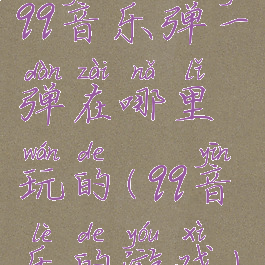 99音乐弹一
dàn zài nǎ lǐ
弹在哪里
wán de yīn
玩的(99音
lè de yóu xì
乐的游戏)